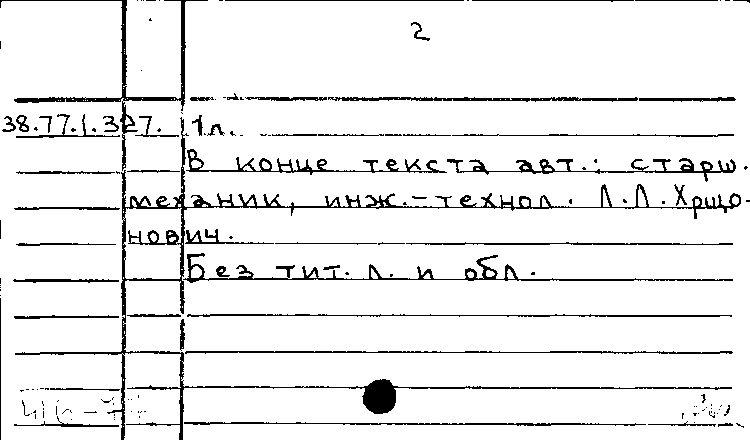 2
38.77.1.327. 1л.
В конце текста авт.: старш.
механик, инж.-технол. Л.Л.Хрщо-
нович.
Без тит. л. и обл.